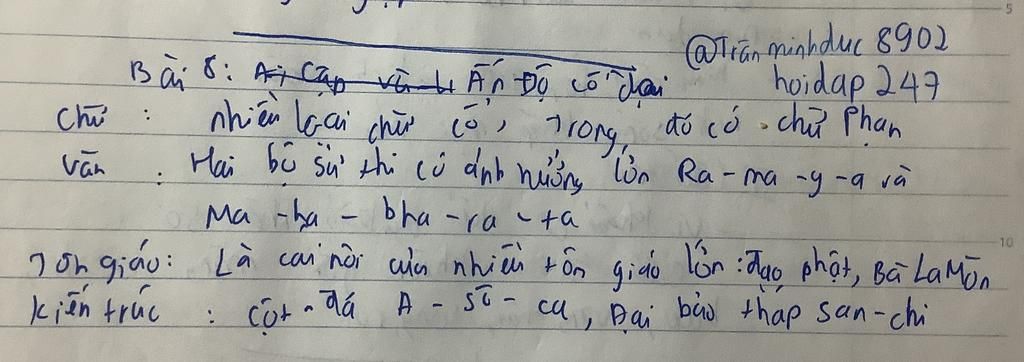 @Trần minhduc 8902
Bài 8: Ai Cập và L Ấn Độ cổ đại
hoidap 247
chữ : nhiều loại chữ cổ, Trong đó có chữ Phạn
văn : Hai bộ sử thi có ảnh hưởng lớn Ra-ma-y-a và
Ma-ha-bha-ra-ta
Tôn giáo: Là cai nôi của nhiều tôn giáo lớn: đạo phật, Bà La Môn
kiến trúc : cột đá A-sô-ca, Đại bảo tháp san-chi